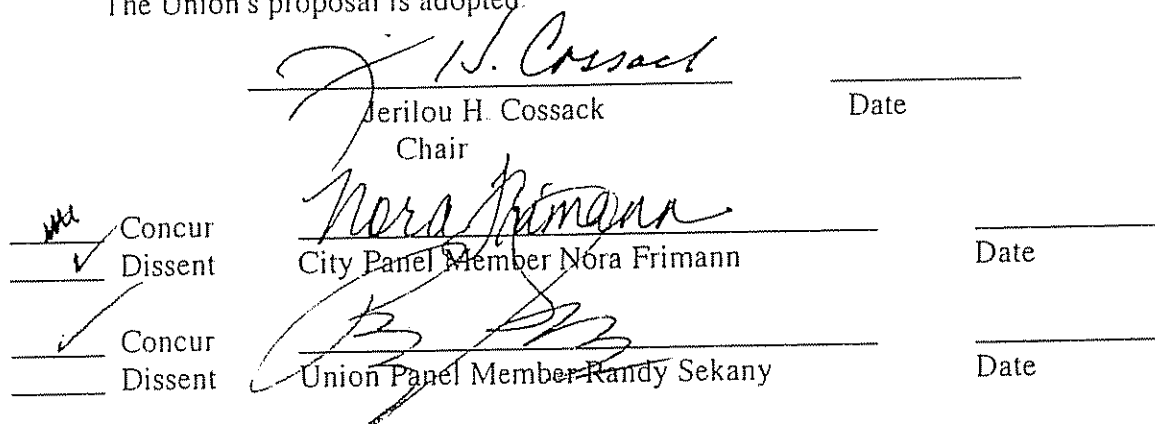 The Union's proposal is adopted.
J. H. Cossack
Jerilou H. Cossack Date
Chair
Nora Frimann
Concur
Dissent City Panel Member Nora Frimann Date
Concur
Dissent Union Panel Member Randy Sekany Date